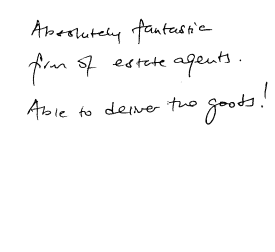 Absolutely fantastic
firm of estate agents.
Able to deliver the goods!